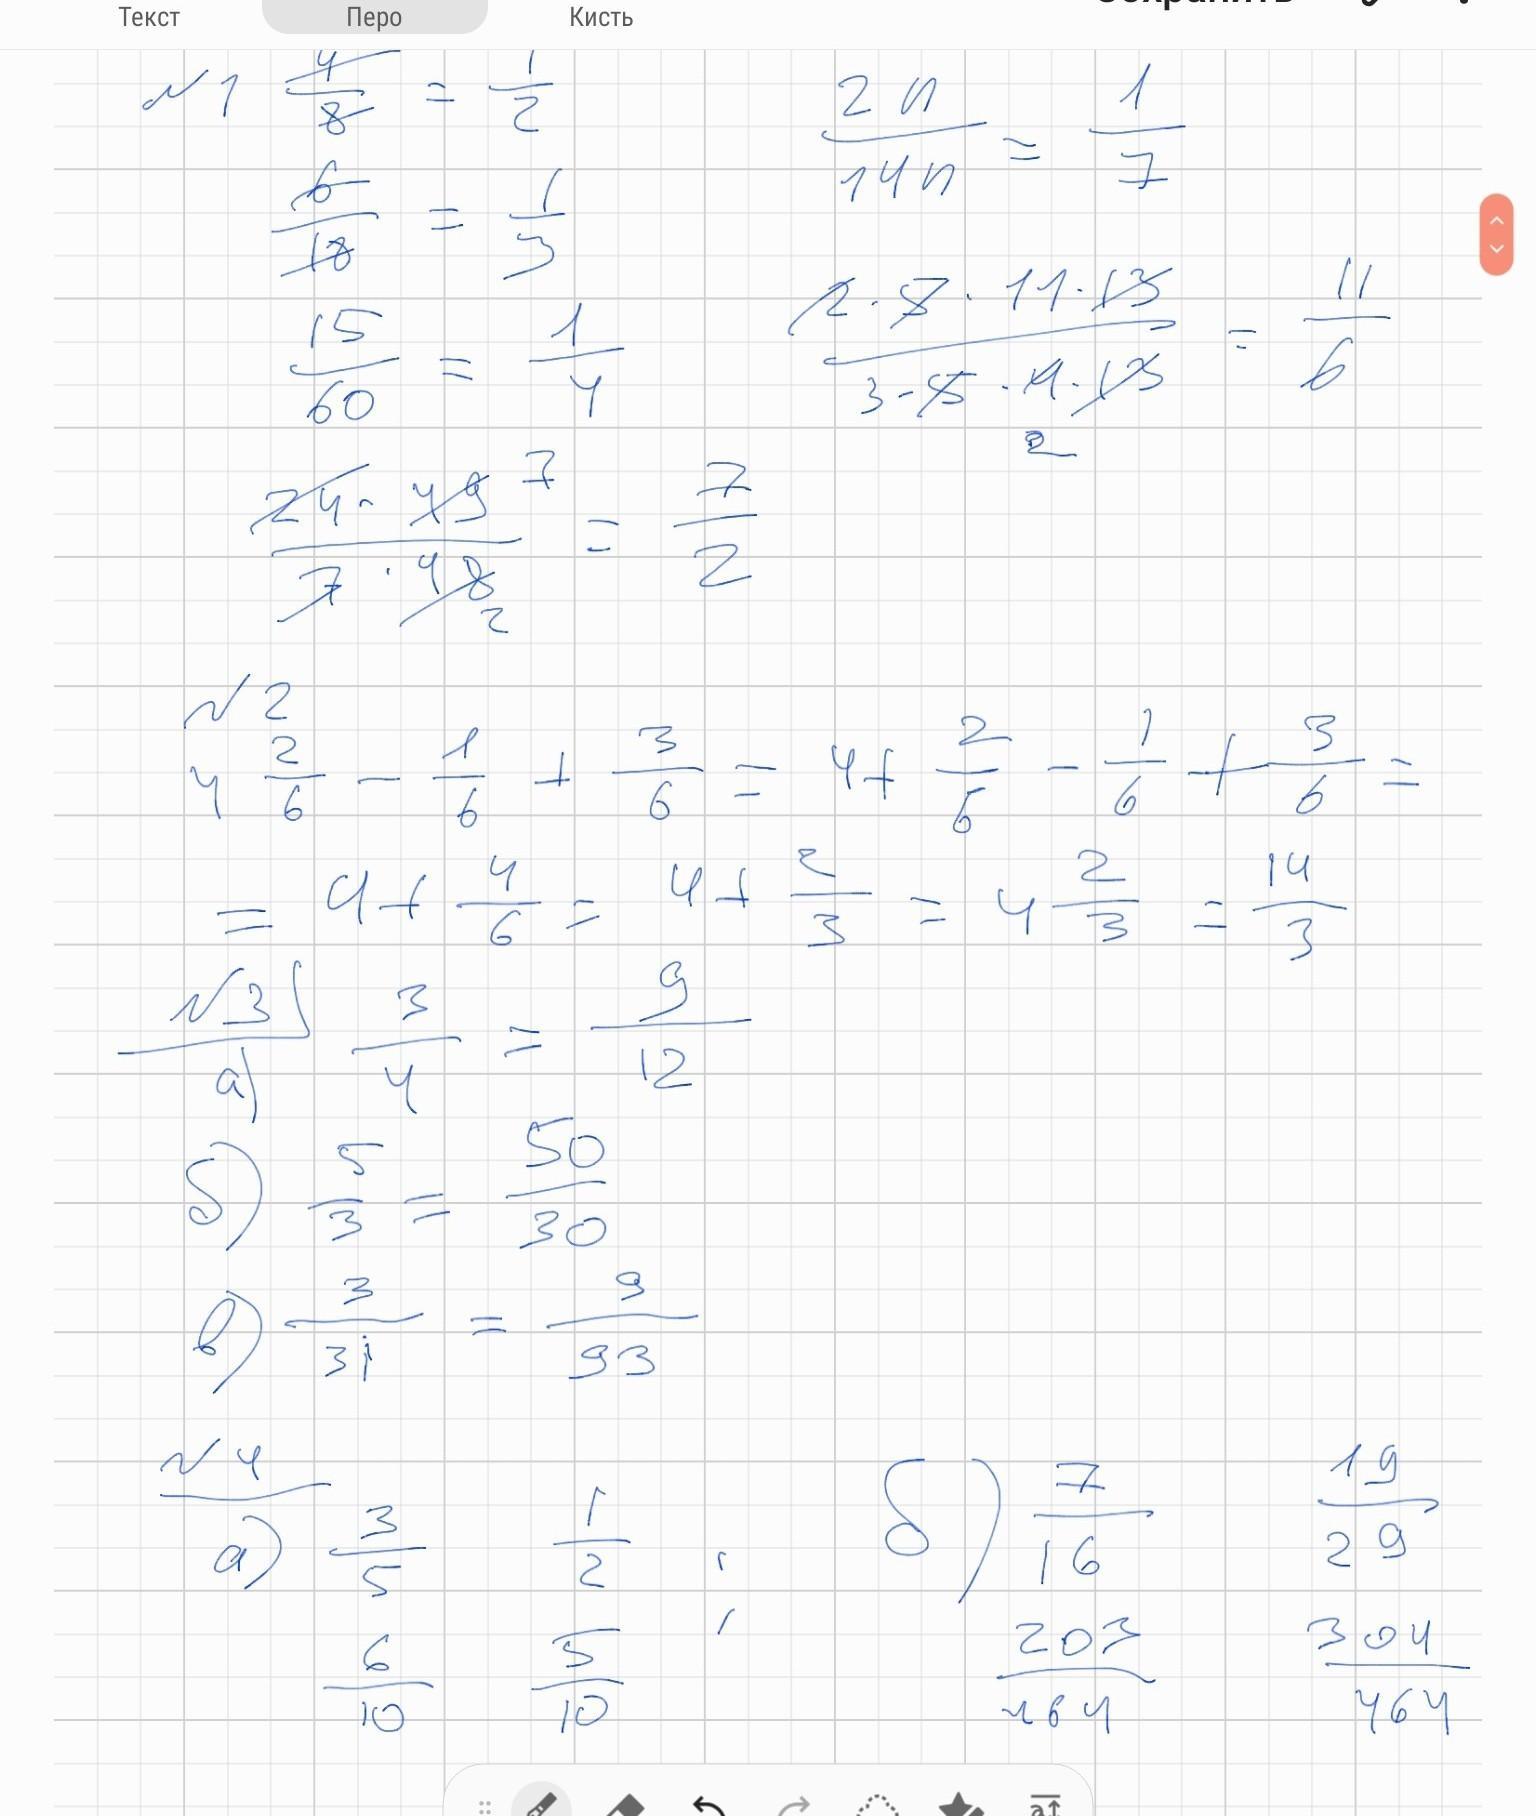 Текст Перо Кисть Сохранить
№1 4/8 = 1/2
2n/14n = 1/7
6/18 = 1/3
2·5·11·13/3·5·4·13 = 11/6
2
15/60 = 1/4
24·49/7·48 = 7/2
7
2
№2
4 2/6 - 1/6 + 3/6 = 4+ 2/6 - 1/6 + 3/6 =
= 4+ 4/6 = 4+ 2/3 = 4 2/3 = 14/3
№3
а) 3/4 = 9/12
б) 5/3 = 50/30
в) 3/31 = 9/93
№4
а) 3/5 1/2 ; б) 7/16 19/29
6/10 5/10 203/464 304/464